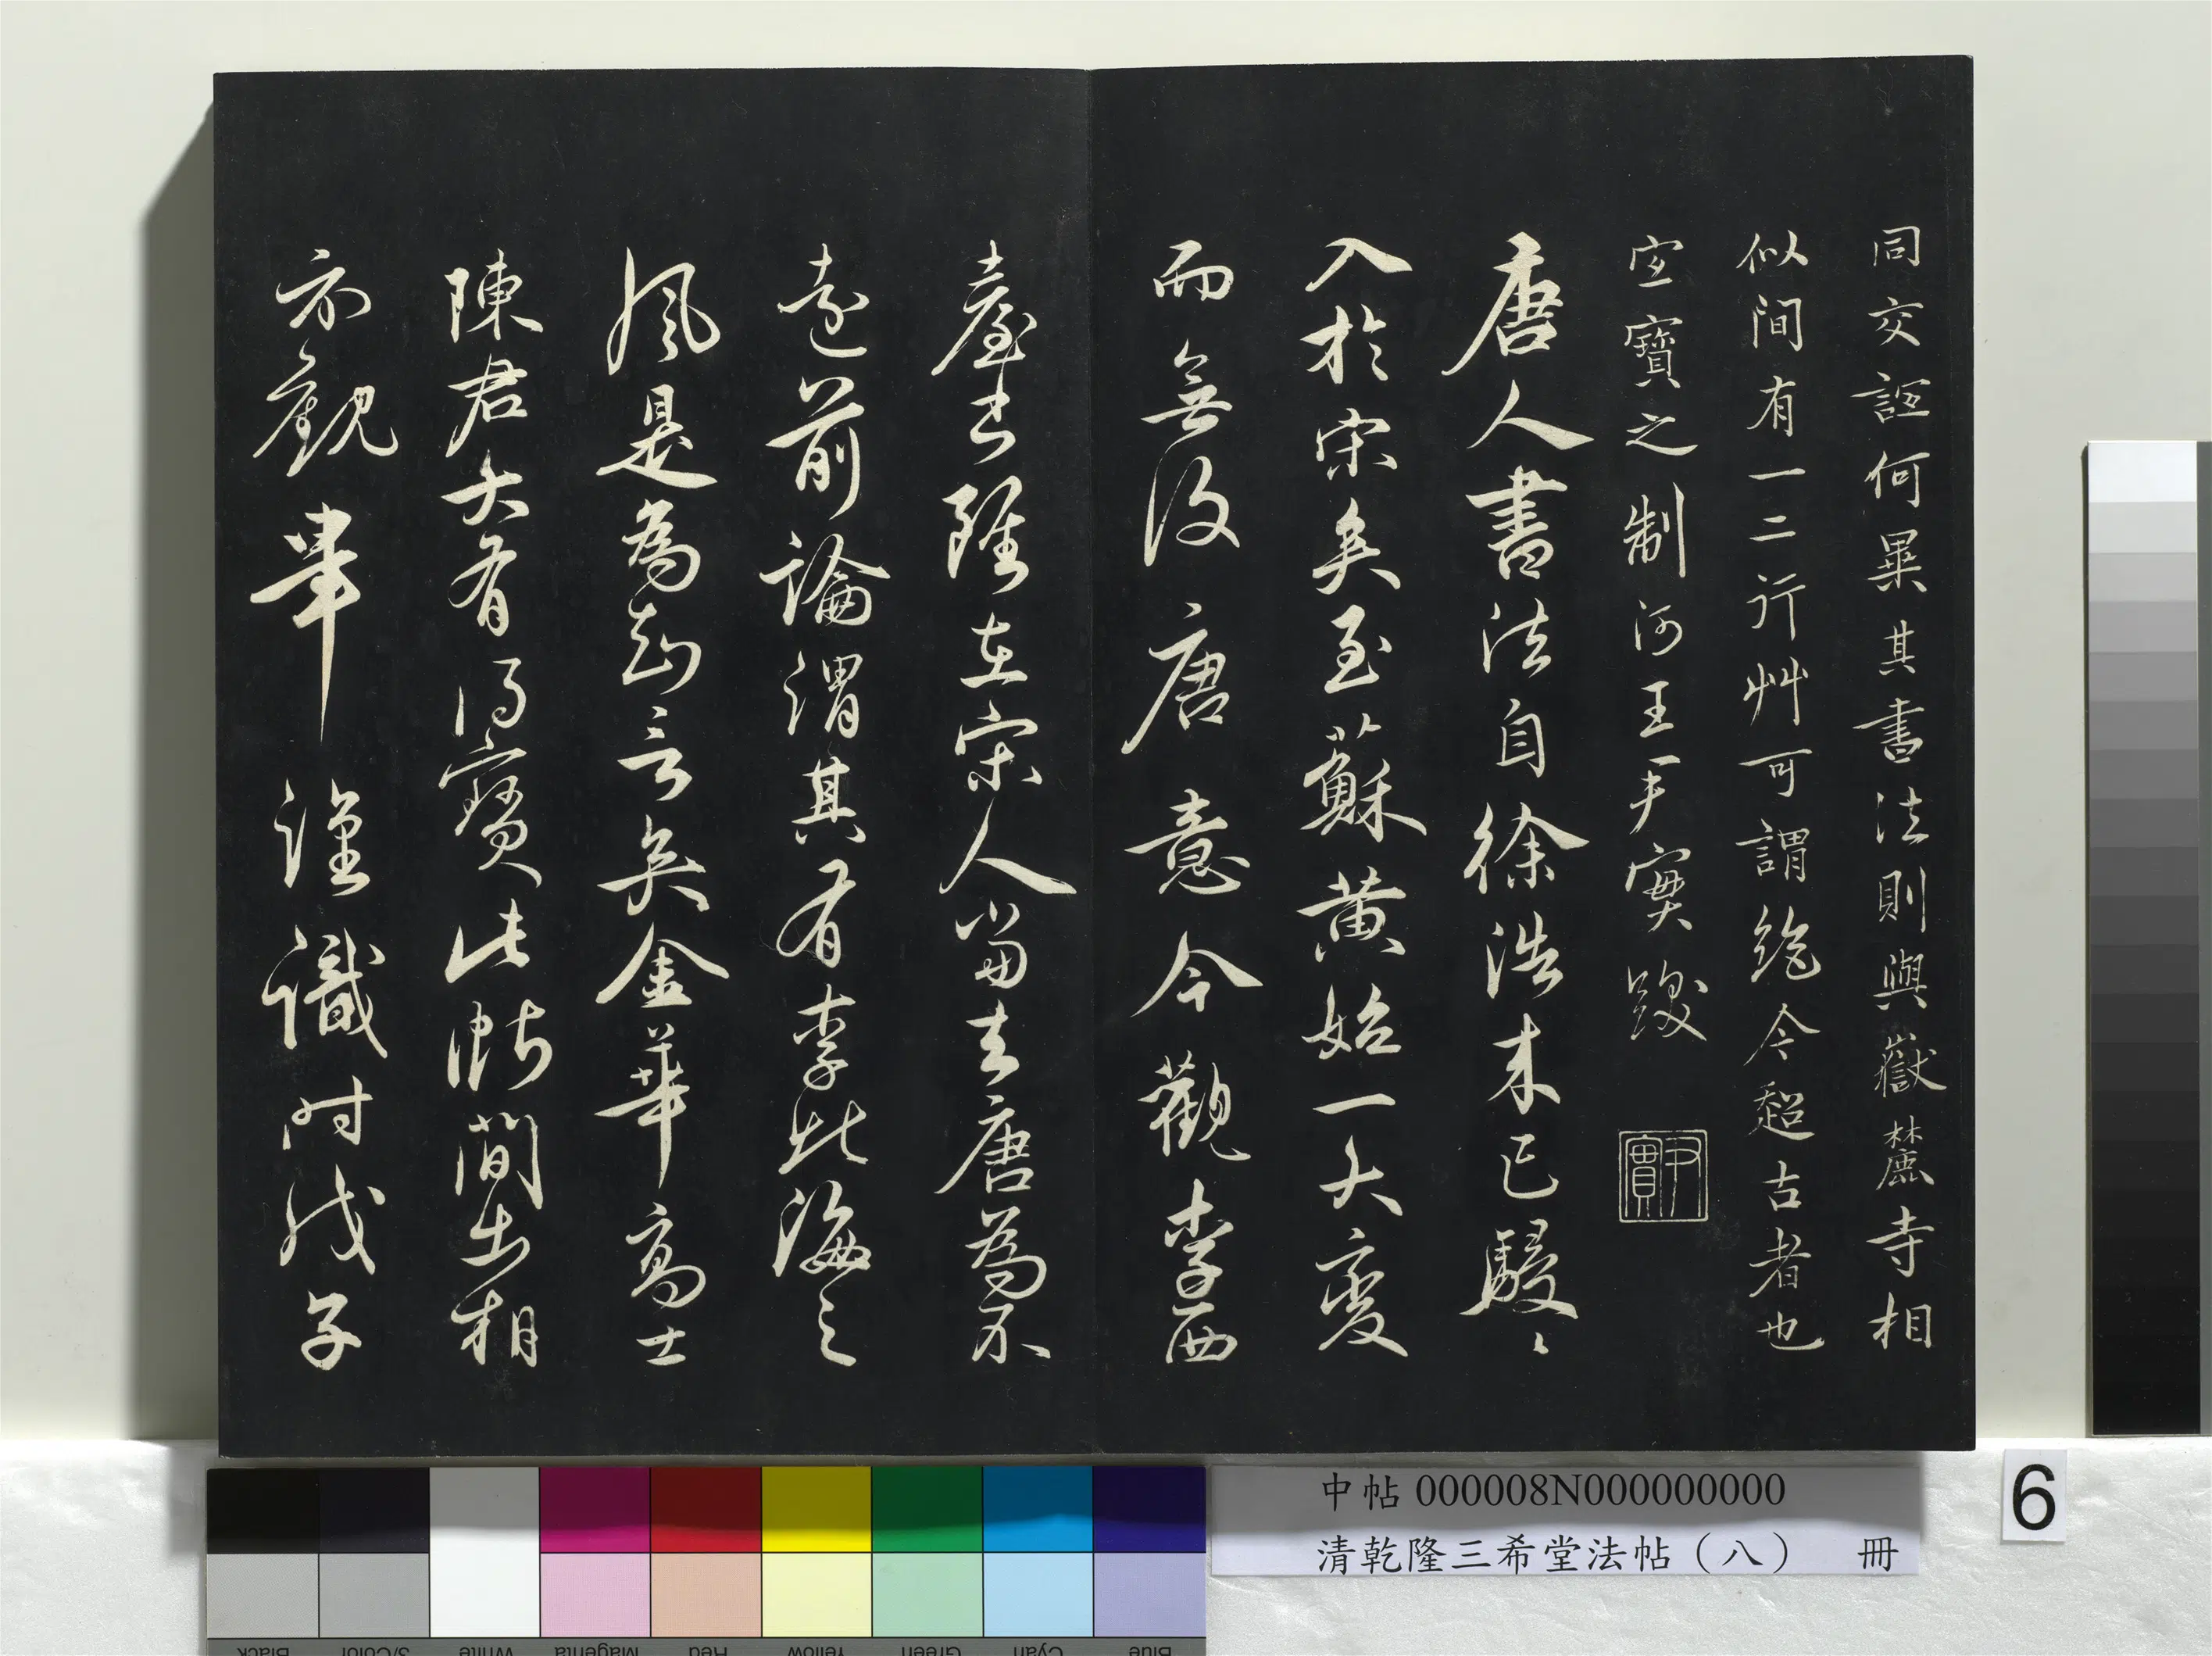 同文詎何異其書法則與嶽麓寺相
似間有一二行艸可謂絶今超古者也
宜寶之制河王手實跋
唐人書法自徐浩末已駸〻
入於宋矣至蘇黄始一大變
而無復唐意今觀李西
臺書雖在宋人當去唐為不
遠前論謂其有李北海之
風是為知言矣金華高士
陳君大有得寶此帖簡出相
示觀畢謹識时戊子
中帖 000008N000000000
清乾隆三希堂法帖（八） 冊
6
Black
3/Color
White
Magenta
Red
Yellow
Green
Cyan
Blue